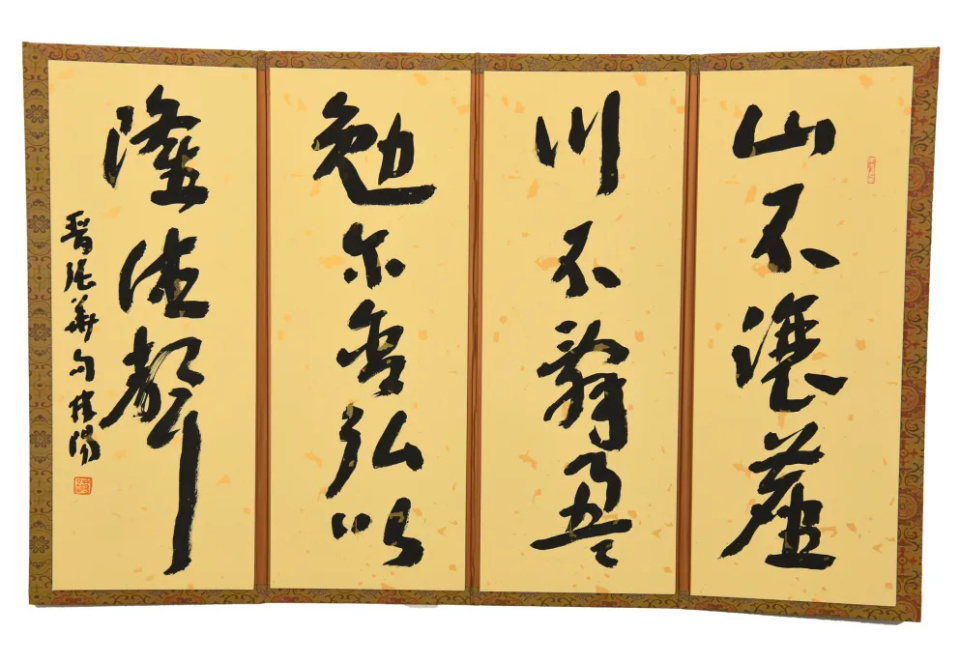 山不讓塵
川不辭盈
勉尔含弘以
隆德聲
晉張華句陽